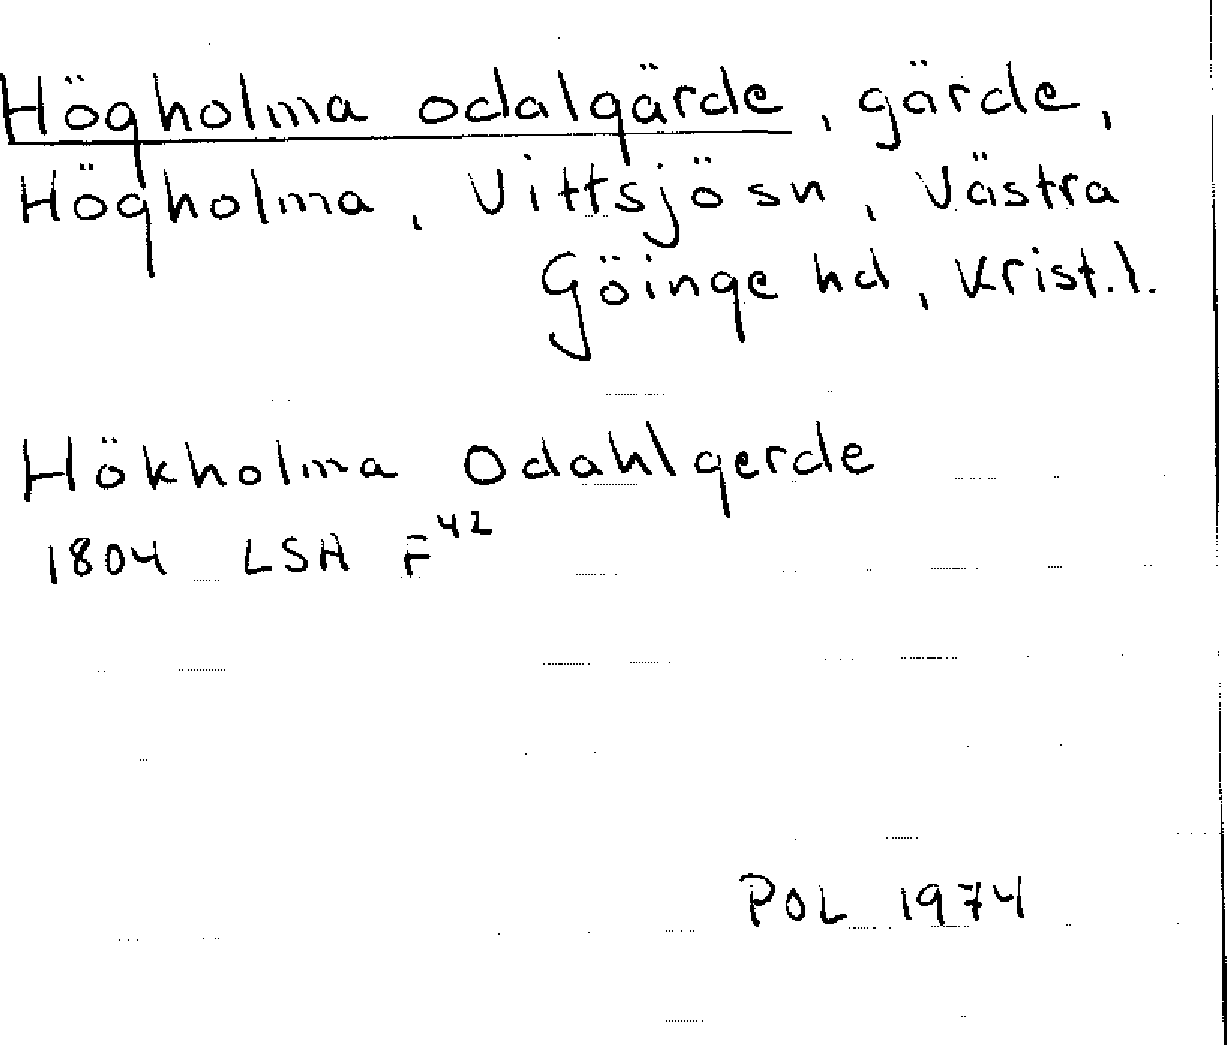 Högholma odalgärde, gärde,
Högholma, Vittsjösn, Västra
Göinge hd, Krist.l.
Hökholma Odahlgerde
1804 LSA F42
POL 1974